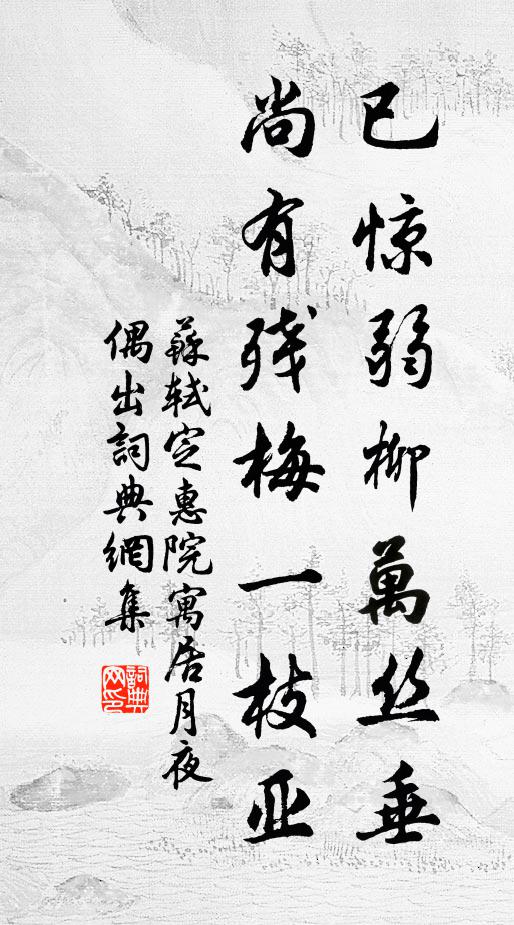 已惊弱柳萬丝垂
尚有残梅一枝亚
蘇轼定惠院寓居月夜
偶出詞典網集
詞典网印